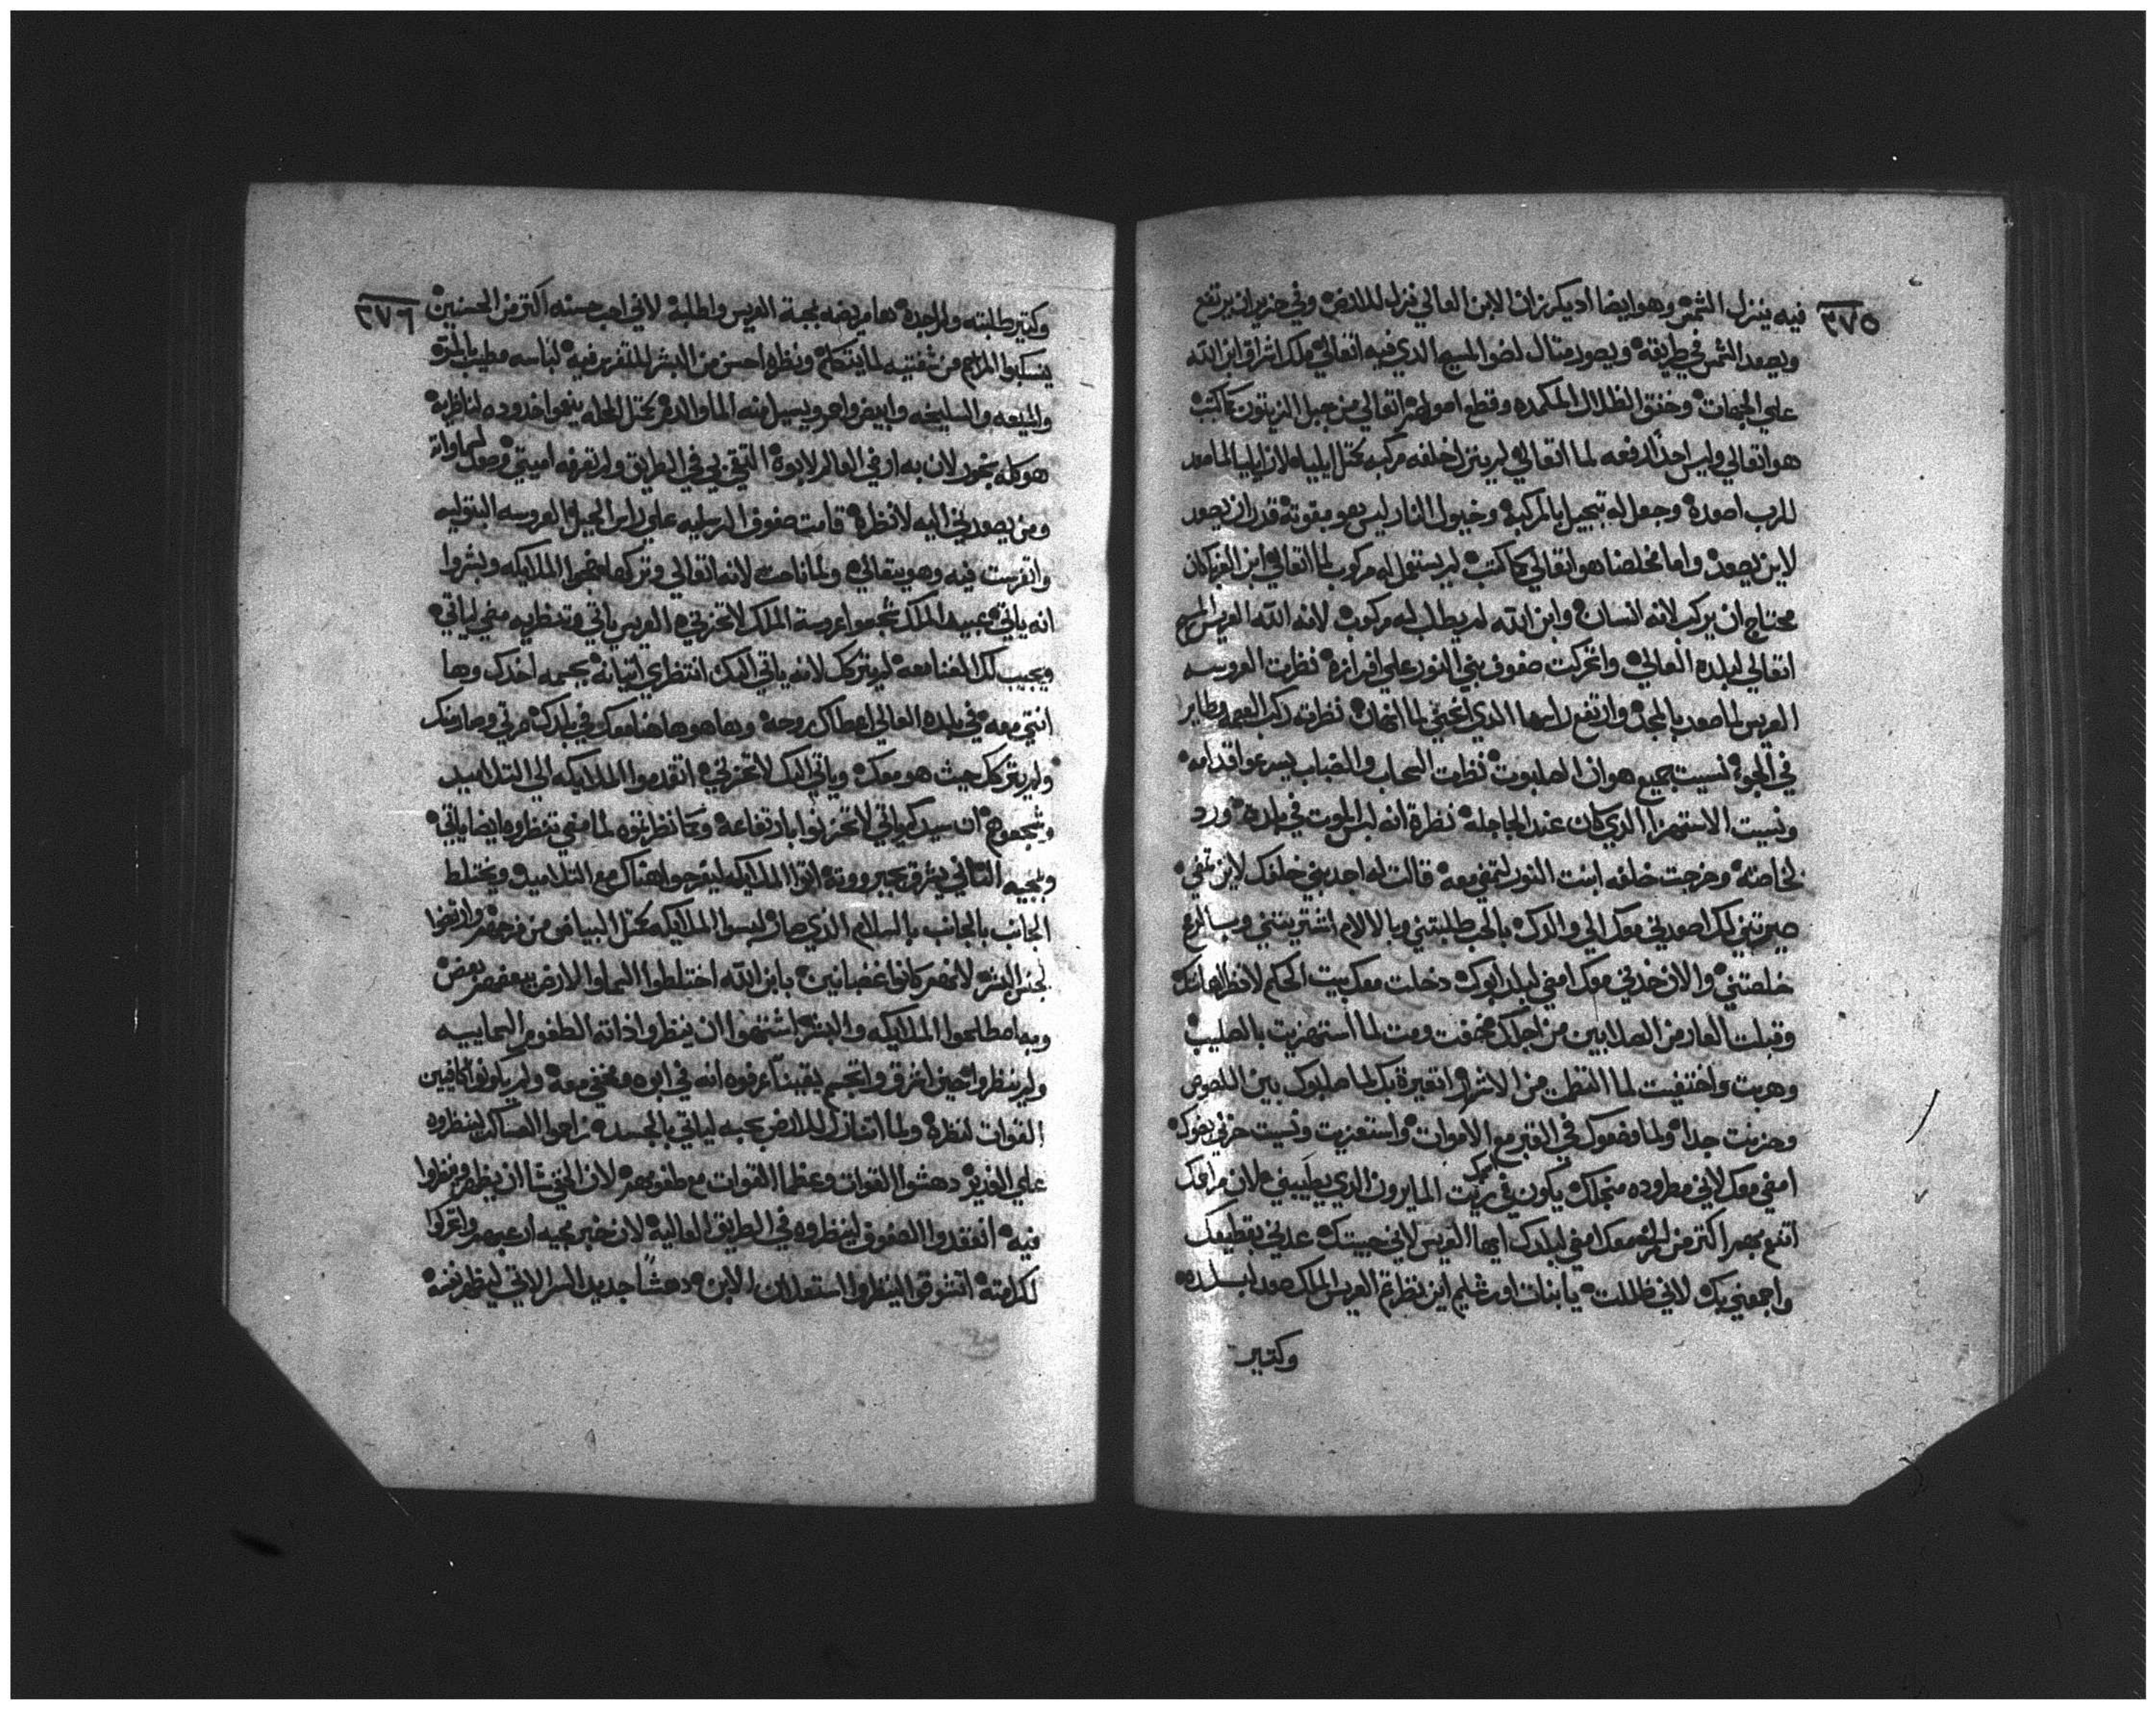 ٣٧٥
فيه ينزل الشمس وهو ايضا اديكرز ان الابن العالي نزل للارض وفي حزيران يرتفع
ويصعد الشمس في طريقته ويصور مثال لضو المسيح الدي فيه اتعالي ملك اشراق ابن الله
علي الجهات وخنق الظلال المكمده وقطع اتعالي من جبل الزيتون كما كتب
هو اتعالي وليس احدًا دفعه لما اتعالي لم ينزل خلفه مركبه كمتل ايلياه لان ايليا لما صعد
للرب اصعده وجعل له تبجيل بالمركبة وخيول النار ليس هو بقوته قدر ان يصعد
لاين يصعد واما مخلصنا هو اتعالي كما كتب لم يستعمل له مركوب لما اتعالي ابن العز كان
محتاج ان يركب لانه انسان وابن الله لم يطلب له مركوب لانه الله العريس
اتعالي لبلده العالي واتحركت صفوف بني النور علي افرازه نظرت العروسه
العريس لما صعد بالمجد وارتفع راسها الدي انحني لما انهان نظرته ركب الغيمه وطاير
في الجو نسيت جميع هوان الصلبوت نظرت السحاب والضباب يسرعو اقدامه
ونسيت الاستهزا الدي كان عند الجاجله نظرة انه لبس في بلده ورد
لخاصته وخرجت خلفه ابنت النور لتمضي معه قالت له اجدبني خلفك لاين تمضي
صيرتني لك اصعدني معك الي والدك بالحب طلبتني وبالالام اشتريتني وبالدم
خلصتني والان خدني معك امضي لبلد ابوك دخلت معك بيت الحكم
وقبلت العار من الصلابين من اجلك ضعفت ومت لما استهزيت بالصليب
وهربت واختفيت لما انلطمت من الاشرار اتعيرة بك لما صلبوك بين اللصوص
وحزنت جدا ولما وضعوك في القبر مع الاموات واستعزيت ونسيت حزني بضوك
امضي معك لاني مطروده منجلك يكون في ريحت المايرون الدي يطيبني لان
اتنعم بهم اكتر من معك امضي لبلدك ايها العريس لاني حبيتك عدني بقطيعك
واجمعني بك لاني ظللت يا بنات اورشليم اين نظرتم العريس الملك صعد لبلده
وكتير
٣٧٦
وكتير طلبته ولم اجده ها مريضه بمحبة العريس واطلبه لاني احب حسنه اكتر من الحسنين
ينسكبوا المراحم من شفتيه لما يتكلم ونظره احسن من البشر لباسه مطيب بالمر
والميعه والسليخه وابيض واحمر ويسيل منه الما والدم كمتل اخدوده لناظريه
هو كله بخور لان به في العالم لابوه التقي بي في الطريق ولم تعرفه اميتي وصعد لسماواته
ومن يصعدني اليه لانظره قامت صفوف الرسليه علي راس الجبل العروسه البتوليه
واتغربت فيه وهو يتعالي ولما ناحت لانه اتعالي وتركها نضموا الملايكه وبشروا
انه ياتي عبيد الملك شجعوا عروسة الملك لا تحزني العريس ياتي وتنظريه متي لياتي
ويجيب لك الغنا معه لم يتركك لانه ياتي اليك انتظري اتيانه بجسمه اخدك وها
انتي معه في بلده العالي اعطاك روحه وها هو هاهنا معك في بلدك مرتي وصار منك
ولم يتركك حيث هو معك وياتي اليك لا تحزني اتقدموا الملايكه الي التلاميد
وشجعوهم ان سيدكم ياتي لا تحزنوا بارتفاعة وكما نظرتوه لما مضي تنظروه ايضا ياتي
ومجيه التاني يشرق بجبرووته اتوا الملايكه ليفرحوا هناك مع التلاميد ويختلط
الجانب بالجانب بالسلام الدي صار لبسوا الملايكه كمتل البياض من فرحهم وارتضوا
بجنس البشر لانهم كانوا غضبانين بابن الله اختلطوا السما والارض ببعضهم بعض
وبه اصطلحوا الملايكه والبشر اشتهوا ان ينظروا داته الطغوم السماييه
ولم ينظروا حين اشرق واتجسم يقينًا عرفوه انه في ابوه ومختفي معه ولم يكونوا كافيين
القوات لنظره ولما اتنازل للارض بحبه لياتي بالجسد زاحوا العساكر لينظروه
علي الغدير دهشوا القوات وعظما القوات مع طقوسهم لان الخفي شا ان يظهر ويتفرسوا
فيه اتفقدوا الصفوف لينظروه في الطريق العاليه لان خبر مجيه ارعبهم واتحركوا
لكرامته اتشوقوا لينظروا استعلان الابن دهشًا جديد السر الاتي ليظهر نفسه